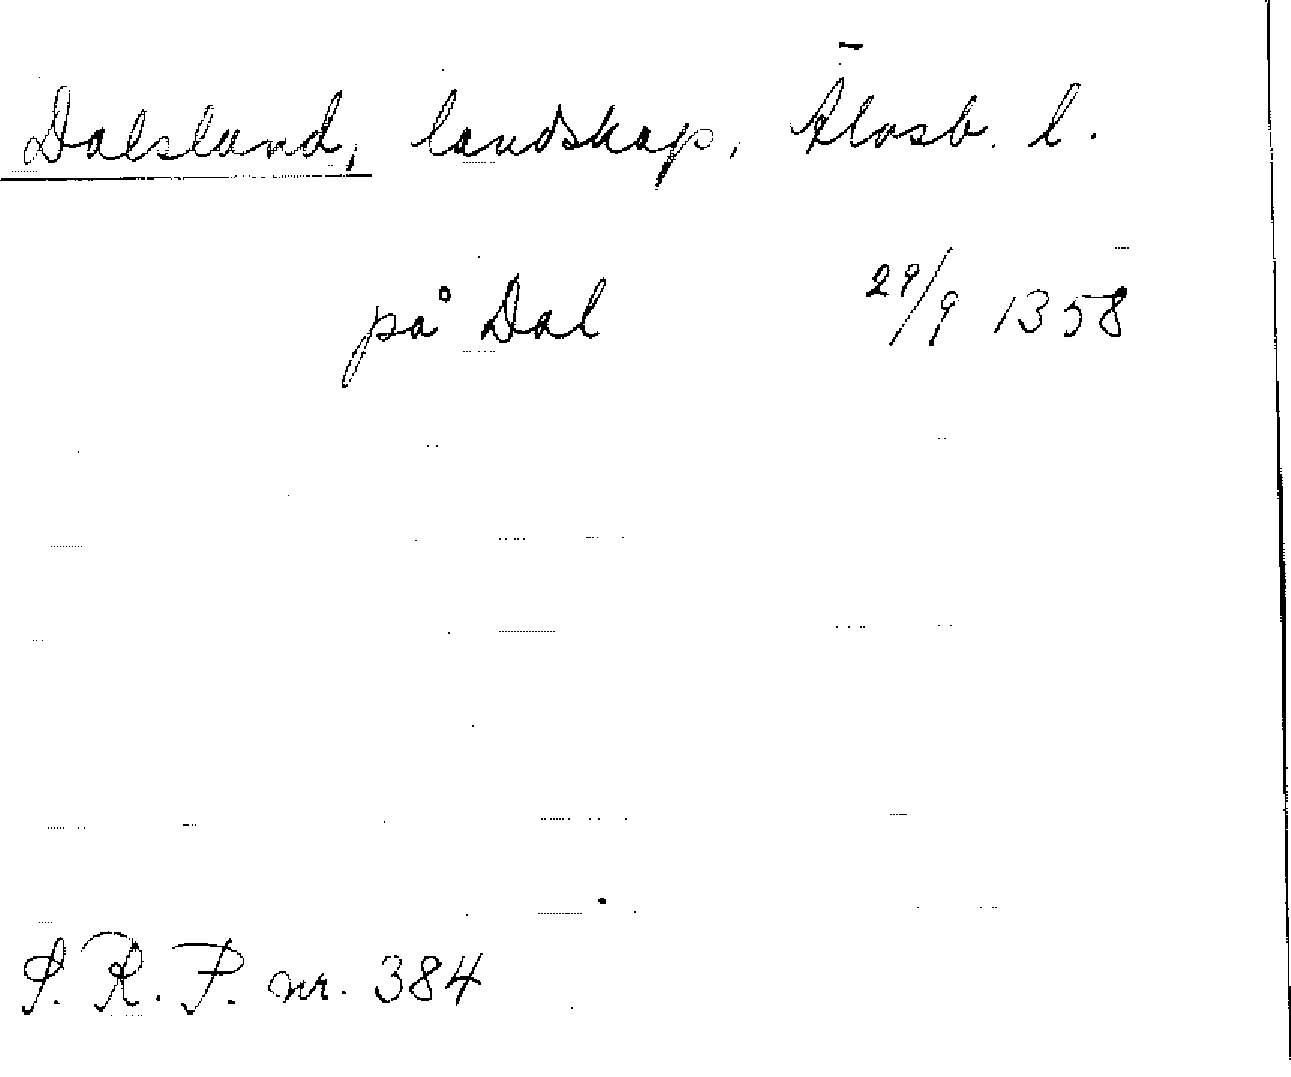 Dalsland, landskap, Älvsb. l.
på Dal 29/9 1358
S. R. P. nr. 384